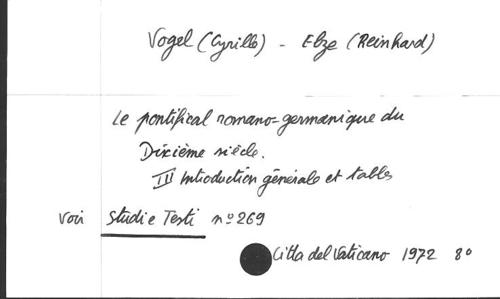 Vogel (Cyrille) - Elze (Reinhard)
Le pontifical romano-germanique du
Dixième siècle.
III Introduction générale et tables
Voir Studi e Testi nº 269
Citta del Vaticano 1972 8º